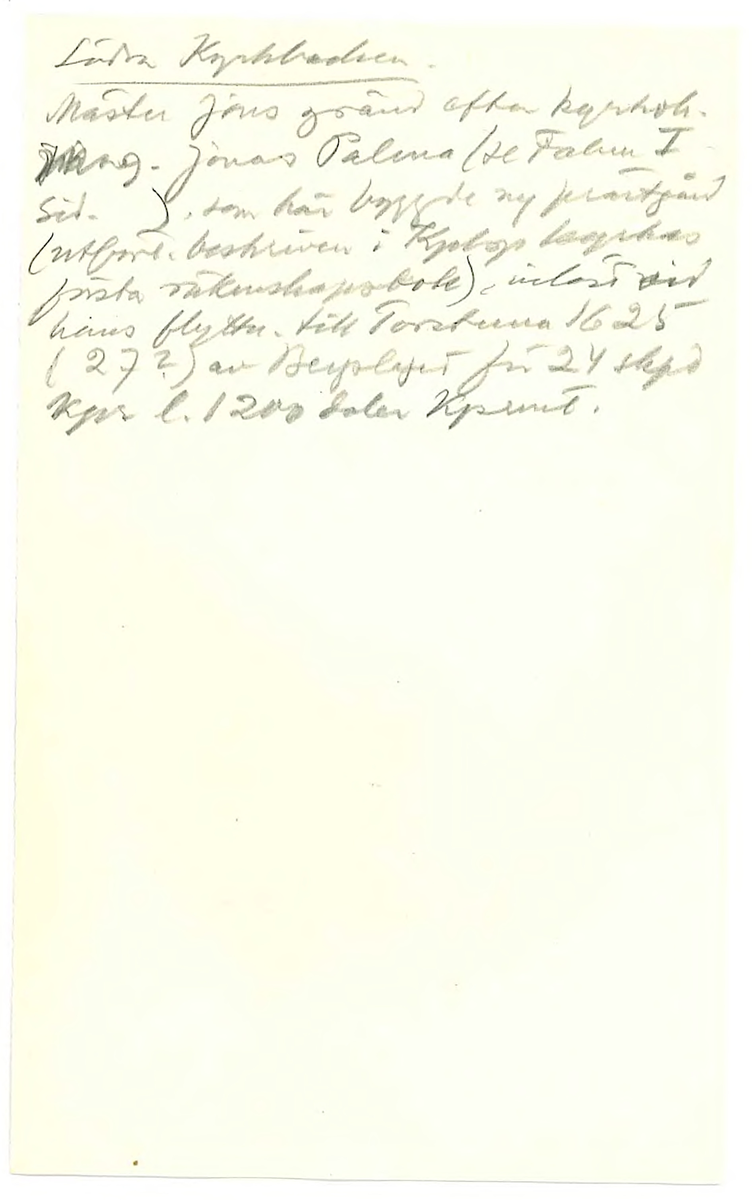 Södra Kyrkbacken.
Mäster Jöns gränd efter kyrkoh.
mag. Jonas Palma (se Falun I
sid. ), som här byggde ny prästgård
(utförl. beskriven i Kpbgs kyrkas
första räkenskapsbok), inlöst vid
hans flyttn. till Torstuna 1625
(27?) av Bergslaget för 24 skpd
kpr l. 1200 daler Kpmt.